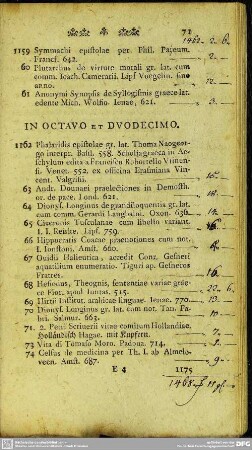 71
1159 Symmachi epistolae per Phil. Pareum.
Francf. 642.
60 Plutarchus de virtute morali gr. lat. cum
comm. Ioach. Camerarii. Lipf Voegelin. sine
anno.
61 Anonymi Synopsis de Syllogismis graece lat.
edente Mich. Wolfio. Ienae, 621.
IN OCTAVO ET DVODECIMO.
1162 Phalaridis epistolae gr. lat. Thoma Naogeorgo
interpr. Basil. 558. Scholia graeca in
edita a Francisco Robortello
Venet. 552. ex officina Erasmiana
Valgrisii.
63 Andr. Dounaei praelectiones in Demosth.
or. de pace. Lond. 621.
64 Dionys. Longinus de grandiloquentia gr. lat.
cum comm. Gerardi Langbainii. Oxon. 636.
65 Ciceronis Tusculanae cum libello variant.
I. I. Reiske. Lips. 759.
66 Hippocratis Coacae praenotiones cum not.
I. Ionstoni. Amst. 660.
67 Ouidii Halieutica, accedit Conr. Gesneri
aquatilium enumeratio. Tiguri ap. Gesneros
Fratres.
68 Hesiodus, Theognis, sententiae variae graece
Flor. apud Iuntas. 515.
69 Hirtii Institut. arabicae linguae. Ienae. 770.
70 Dionys. Longinus gr. lat. cum not. Tan. Fabri.
Salmur. 663.
71 2. Petri Scriverii vitae comitum Hollandiae.
Holländisch Hagae. mit Kupfern.
73 Vita di Tomaso Moro. Padoua. 714.
74 Celsus de medicina per Th. I. ab Almeloveen.
Amst. 687.
E 4
1175